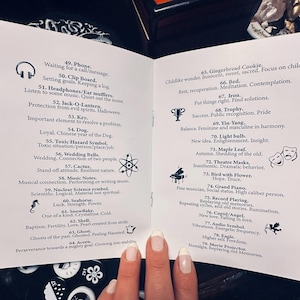 49. Phone.
Waiting for a call/message.
50. Clip Board.
Setting goals. Keeping a log.
51. Headphones/Ear mufflers.
Listen to some music. Quiet out the noise
52. Jack-O-Lantern.
Protection from evil spirits. Halloween.
53. Key.
Important element to resolve a problem.
54. Dog.
Loyal. Chinese year of the Dog.
55. Toxic Hazard Symbol.
Toxic situation/person/place/job
56. Wedding Bells.
Wedding. Connection of two people
57. Cactus.
Stand off attitude. Resilient nature.
58. Music Notes.
Musical connection. Performing or writing music.
59. Nuclear Science symbol.
Scientific. Logical. Material not spiritual.
60. Seahorse.
Luck. Strength. Power.
61. Snowflake.
One of a kind. Crystalline. Cold.
62. Shell.
Baptism. Fertility. Love. Pearl created from strife
63. Ghost.
Ghosts of the past. Ghosted. Feeling Haunted
64. Acorn.
Perseverance towards a mighty goal. Growing
65. Gingerbread Cookie.
Childlike wonder. Innocent, sweet, sacred. Focus on
66. Bed.
Rest, recuperation. Meditation. Contemplation.
67. Iron.
Put things right. Find solutions.
68. Trophy.
Success. Public recognition. Pride
69. Yin-Yang.
Balance. Feminine and masculine in harmony.
70. Light bulb.
New idea. Enlightenment. Insight.
71. Maple Leaf.
Autumn. Shedding of the old.
72. Theatre Masks.
Inauthentic. Dramatic behavior.
73. Bird with Flower.
Hope. Truce.
74. Grand Piano.
Fine mountain. Social status. High caliber person.
75. Record Playing.
Replaying old memories.
Repeating cycles, end old stories. Rumination.
76. Cupid/Angel.
New love. Project.
77. Audio Symbol.
Vibration. Energetic frequency.
78. Eagle.
Higher self. Freedom.
79. Movie Projector.